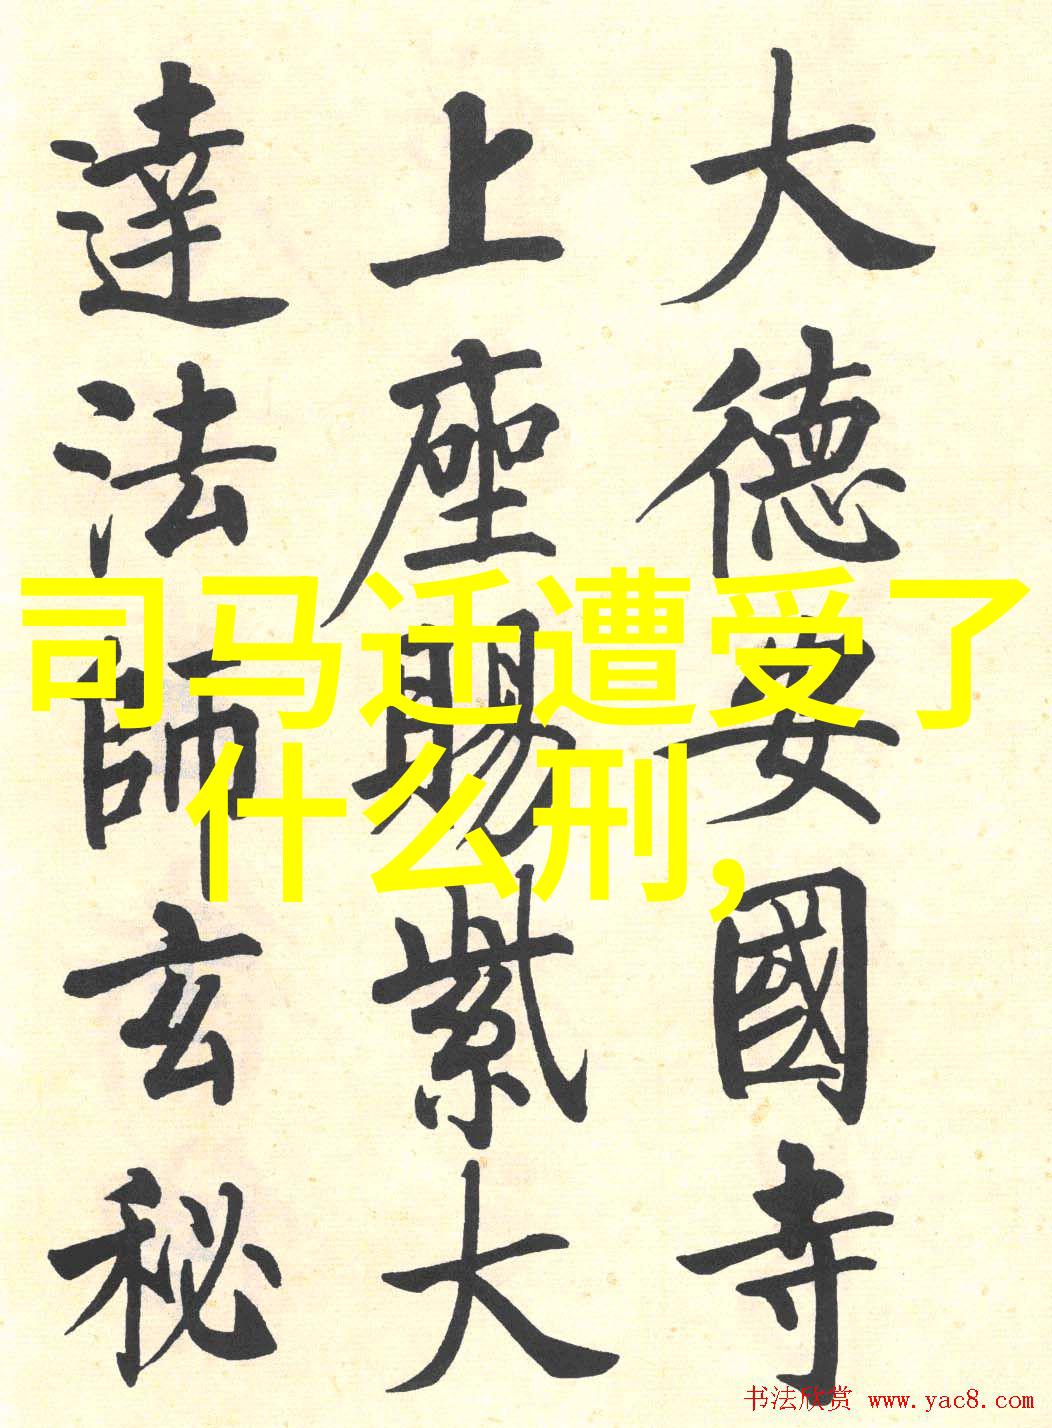 大德安國寺
上座賜紫大
達法師玄秘
司马迁遭受了
什么刑,
书法欣赏 www.yac8.com